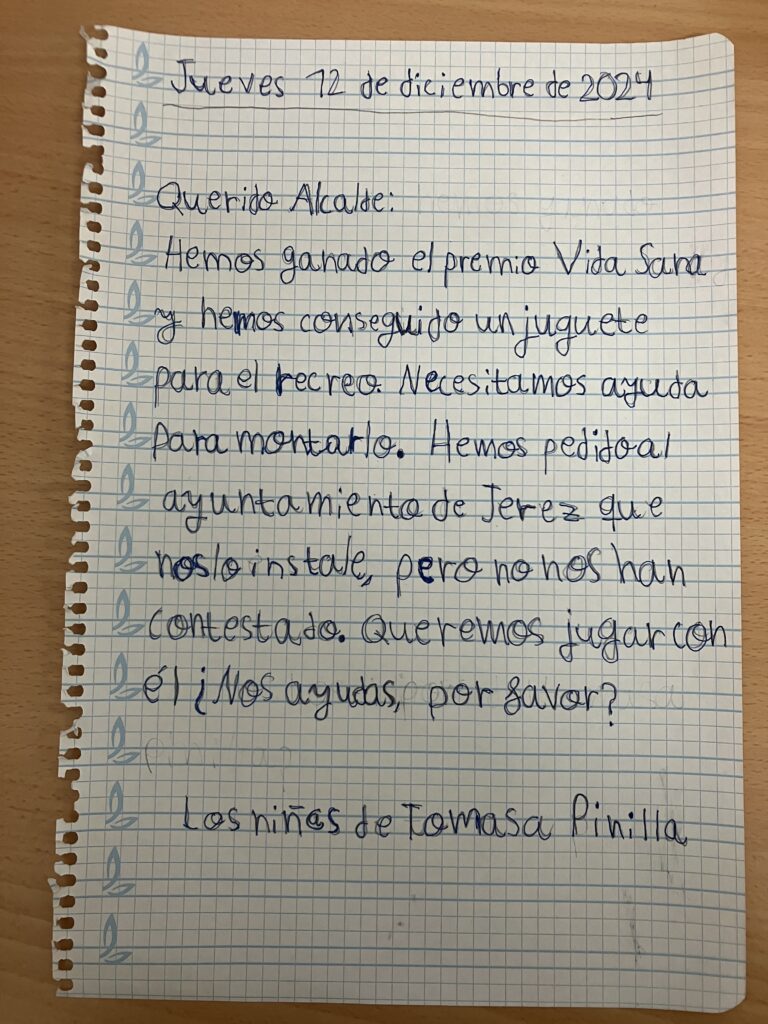 Jueves 12 de diciembre de 2024
Querido Alcalde:
Hemos ganado el premio Vida Sana
y hemos conseguido un juguete
para el recreo. Necesitamos ayuda
para montarlo. Hemos pedido al
ayuntamiento de Jerez que
nos lo instale, pero no nos han
contestado. Queremos jugar con
él ¿Nos ayudas, por favor?
Los niños de Tomasa Pinilla